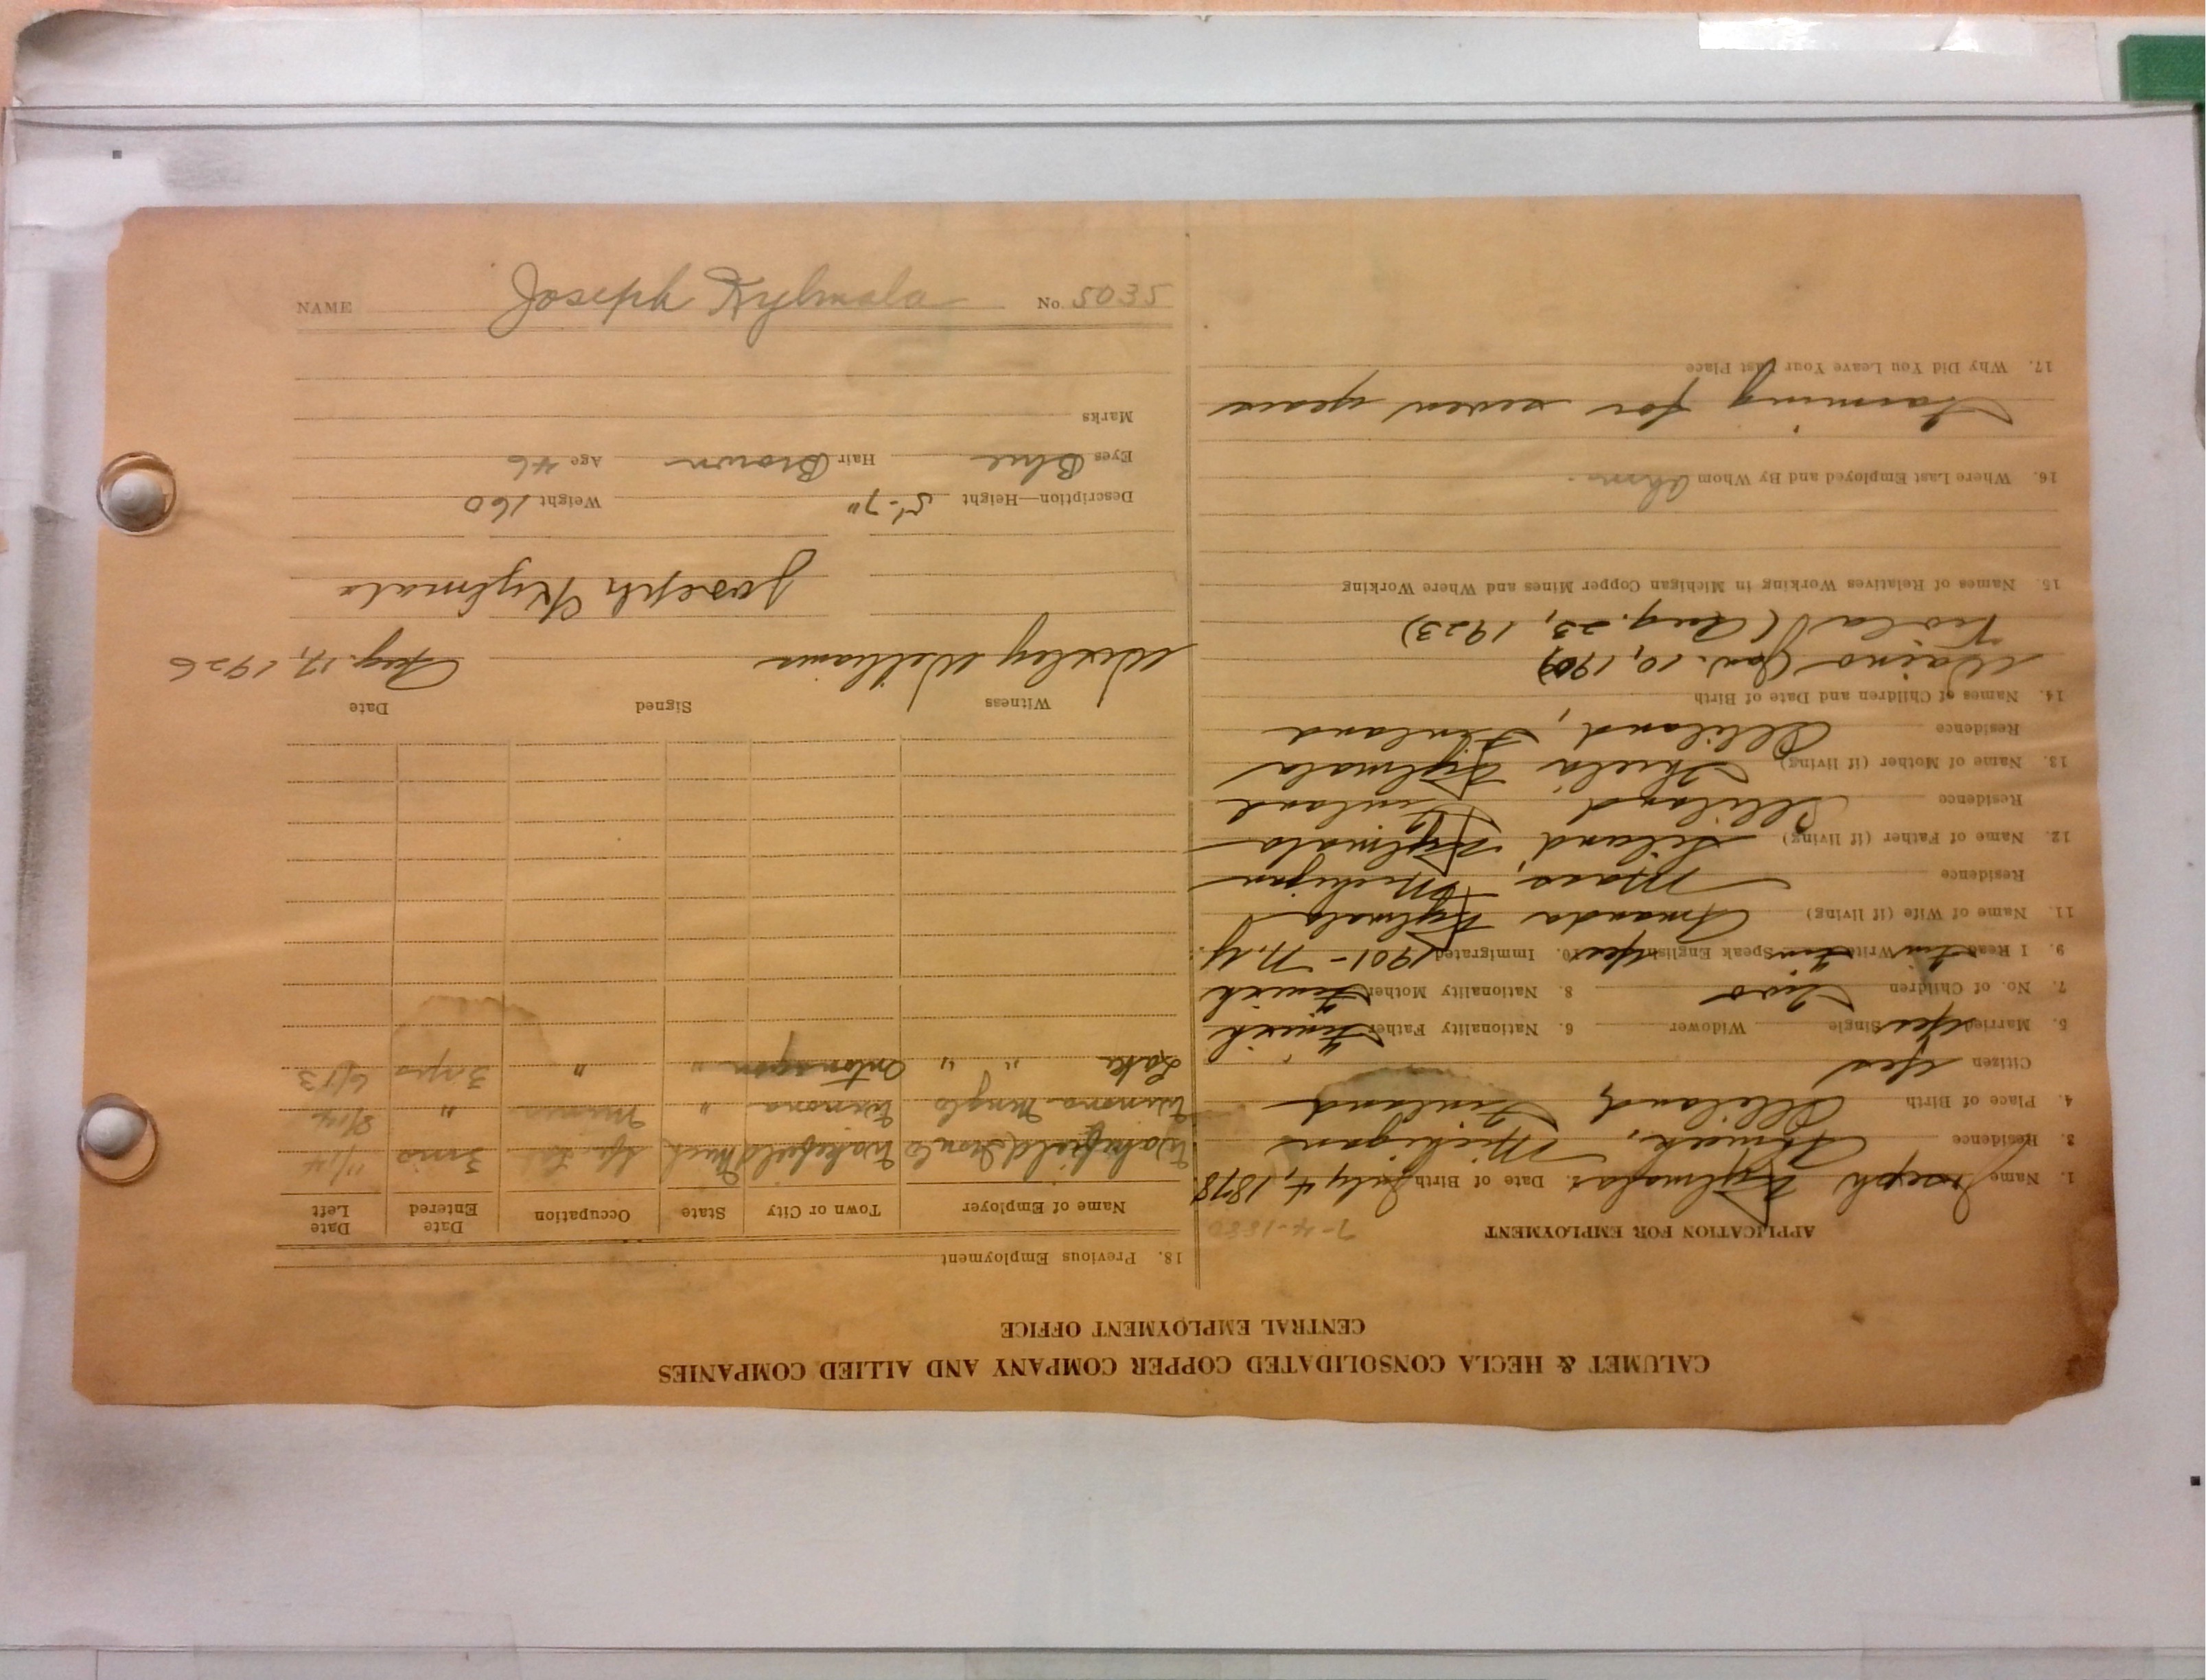 CALUMET & HECLA CONSOLIDATED COPPER COMPANY AND ALLIED COMPANIES
CENTRAL EMPLOYMENT OFFICE
APPLICATION FOR EMPLOYMENT 7-4-1880
1. Name Joseph Kylmala 2. Date of Birth July 4, 1878
3. Residence Michigan
4. Place of Birth Finland
Citizen Yes
5. Married Yes Single Widower 6. Nationality Father Finnish
7. No. of Children Two 8. Nationality Mother Finnish
9. I Read Fin Write Fin Speak English Yes 10. Immigrated 1901 - N.Y.
11. Name of Wife (if living) Amanda Kylmala
Residence Mass, Michigan
12. Name of Father (if living) Kylmala
Residence Finland
13. Name of Mother (if living) Kylmala
Residence Finland
14. Names of Children and Date of Birth
Waino (Jan. 10, 1909)
Viola (Aug. 23, 1923)
15. Names of Relatives Working in Michigan Copper Mines and Where Working
16. Where Last Employed and By Whom
Farming for seven years
17. Why Did You Leave Your Last Place
18. Previous Employment
Name of Employer Town or City State Occupation Date Entered Date Left
Wakefield Iron Co Wakefield Mich 3 mos 11/14
Winona Winona " Miner " 8/14
Lake " " Ontonagon " " 3 yrs 6/13
Witness Signed Date
Wesley Williams Aug. 17, 1926
Joseph Kylmala
Description—Height 5'-7" Weight 160
Eyes Blue Hair Brown Age 46
Marks
NAME Joseph Kylmala No. 5035